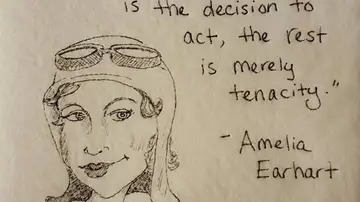 is the decision to
act, the rest
is merely
tenacity."
- Amelia
Earhart